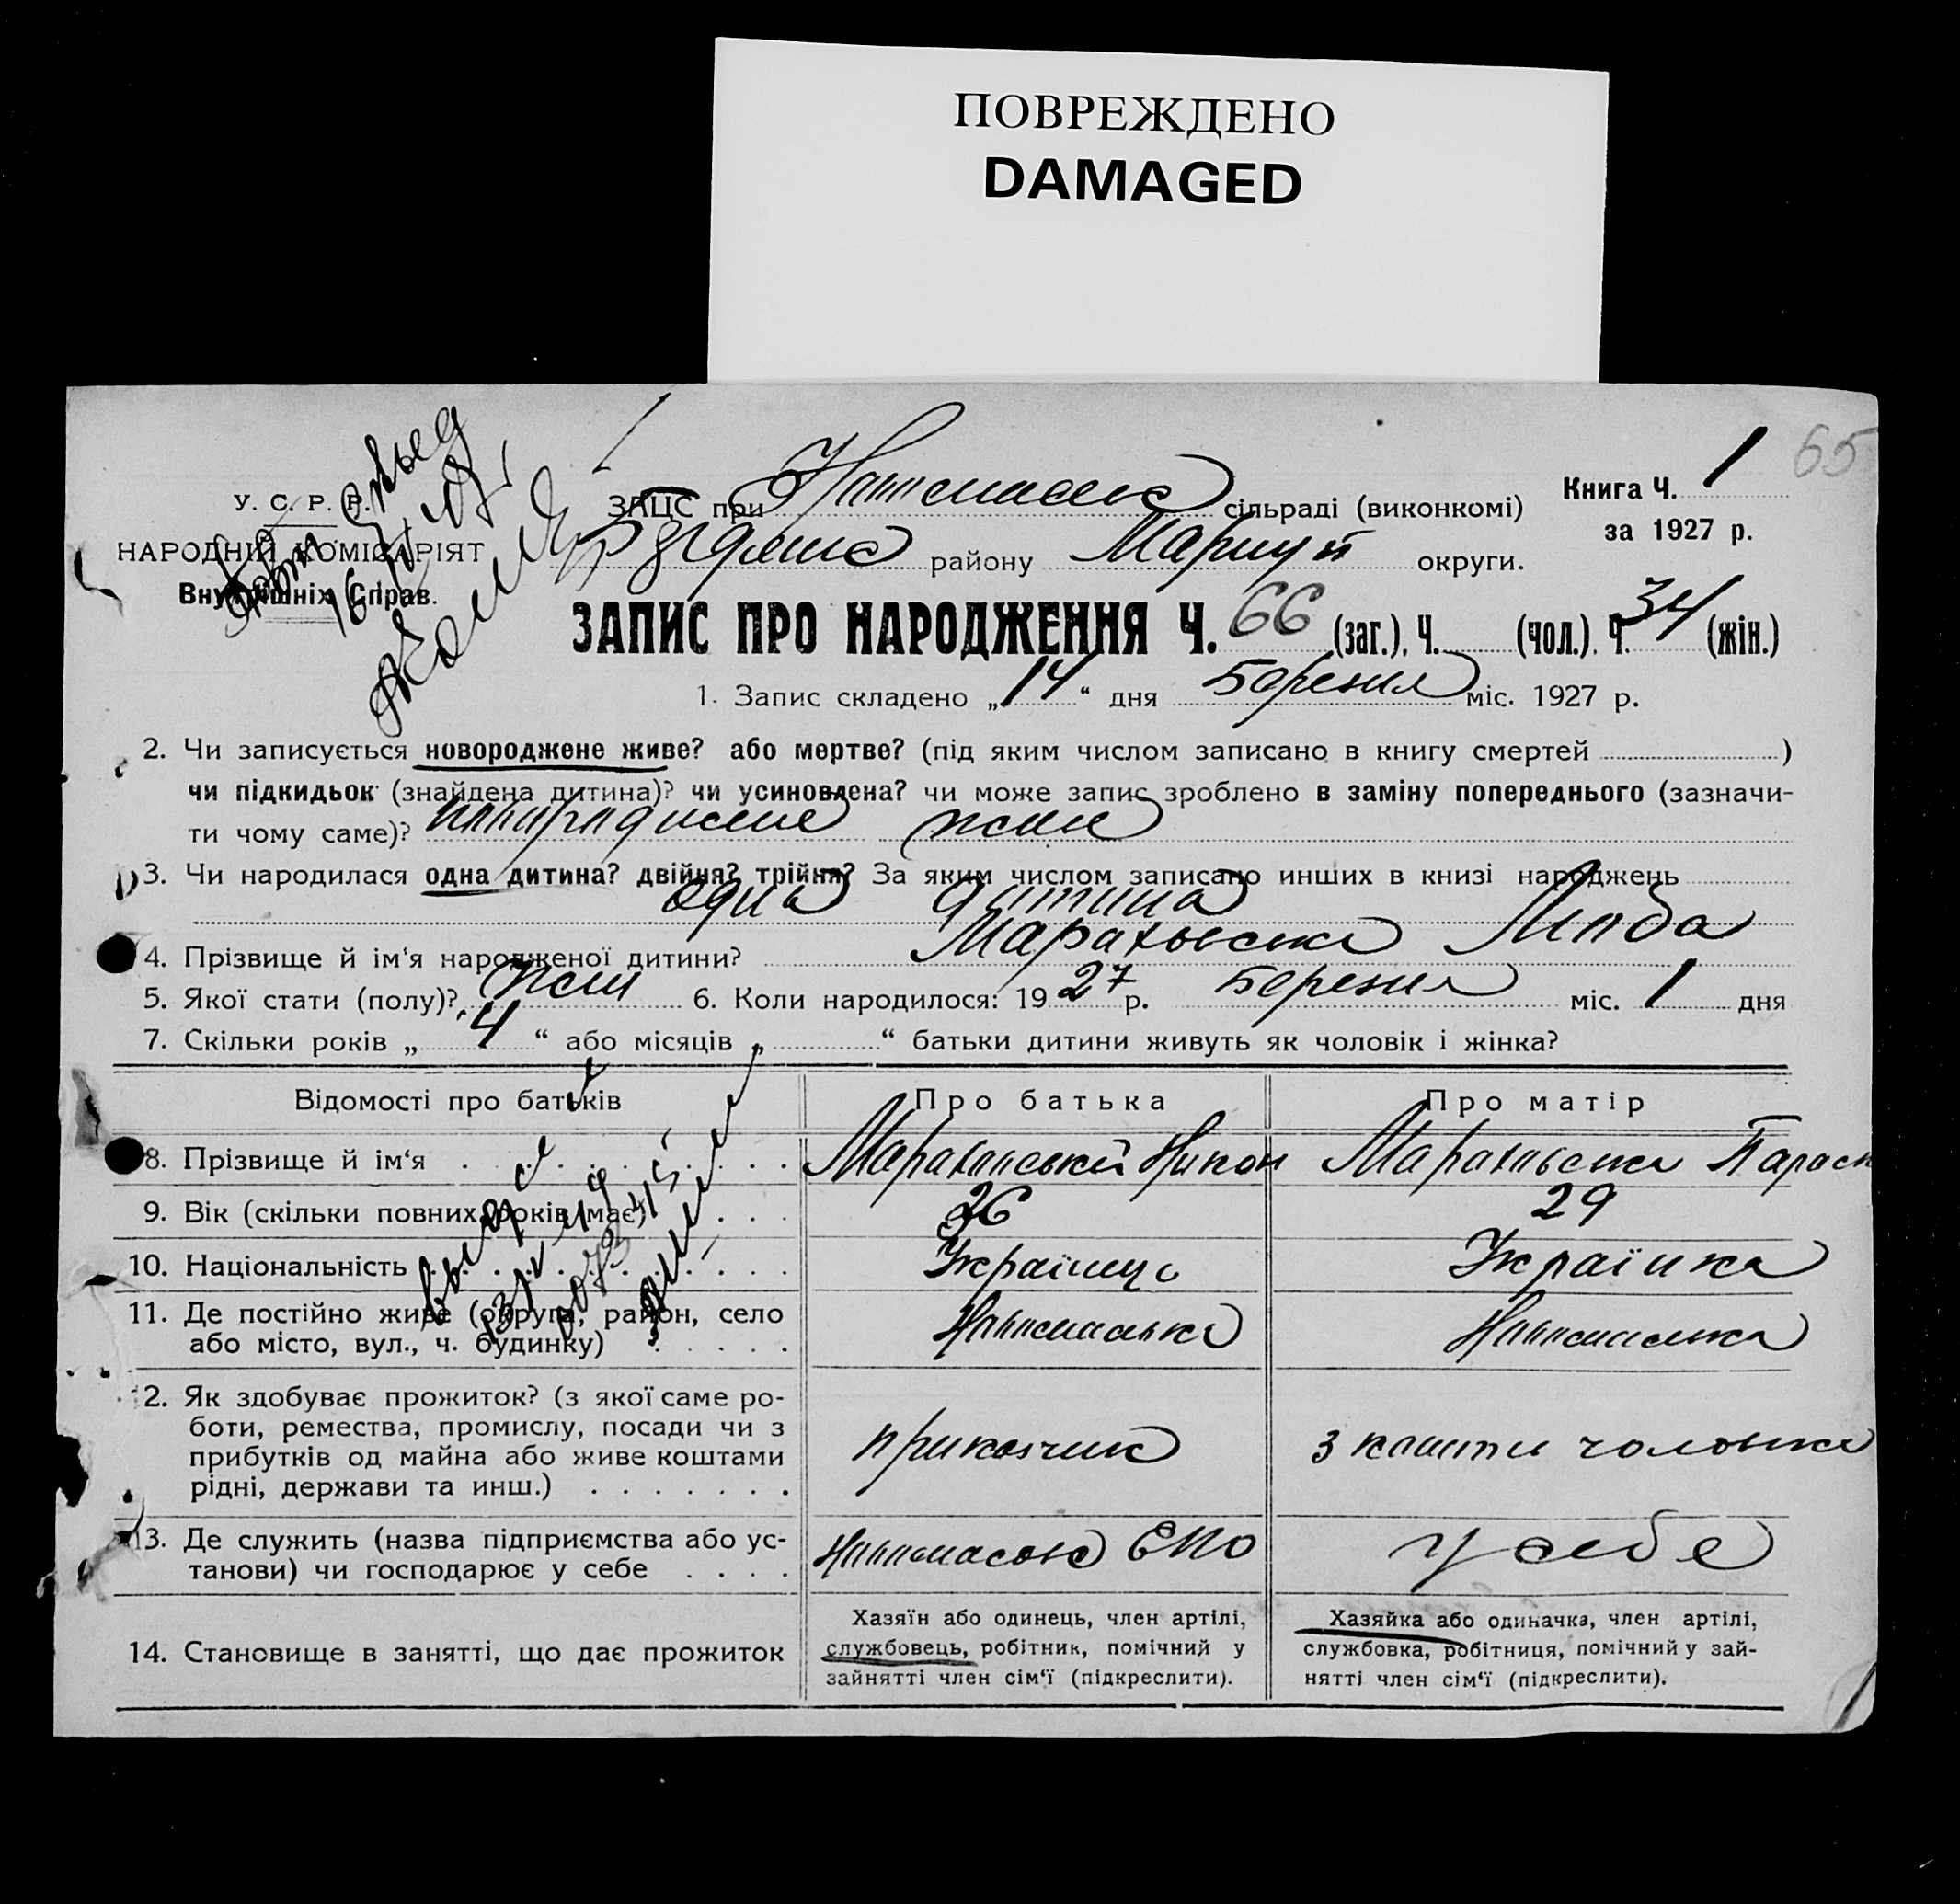 ПОВРЕЖДЕНО
DAMAGED
65
У. С. Р. Р.
НАРОДНІЙ КОМІСАРІЯТ
Внутрішніх Справ.
ЗАЦС при сільраді (виконкомі)
району Маріуп округи.
Книга Ч. 1
за 1927 р.
ЗАПИС ПРО НАРОДЖЕННЯ Ч. 66 (заг.), Ч. (чол.). Ч. 34 (жін.)
1. Запис складено „14“ дня Березня міс. 1927 р.
2. Чи записується новороджене живе? або мертве? (під яким числом записано в книгу смертей )
чи підкидьок (знайдена дитина)? чи усиновлена? чи може запис зроблено в заміну попереднього (зазначи-
ти чому саме)?
3. Чи народилася одна дитина? двійня? трійня? За яким числом записано инших в книзі народжень
одна дитина
4. Прізвище й ім‘я народженої дитини? Мараховська Люба
5. Якої стати (полу)? жін 6. Коли народилося: 1927 р. Березня міс. 1 дня
7. Скільки років „4“ або місяців „ “ батьки дитини живуть як чоловік і жінка?
Відомості про батьків Про батька Про матір
8. Прізвище й ім‘я Мараховський Никон Мараховська Параск
9. Вік (скільки повних років має) 26 29
10. Національність Українець Українка
11. Де постійно живе (округа, район, село
або місто, вул., ч. будинку)
12. Як здобуває прожиток? (з якої саме ро-
боти, ремества, промислу, посади чи з
прибутків од майна або живе коштами
рідні, держави та инш.) приказчик з кошти чоловіка
13. Де служить (назва підприємства або ус-
танови) чи господарює у себе ЕПО у себе
14. Становище в занятті, що дає прожиток
Хазяїн або одинець, член артілі,
службовець, робітник, помічний у
зайнятті член сім‘ї (підкреслити).
Хазяйка або одиначка, член артілі,
службовка, робітниця, помічний у зай-
нятті член сім‘ї (підкреслити).